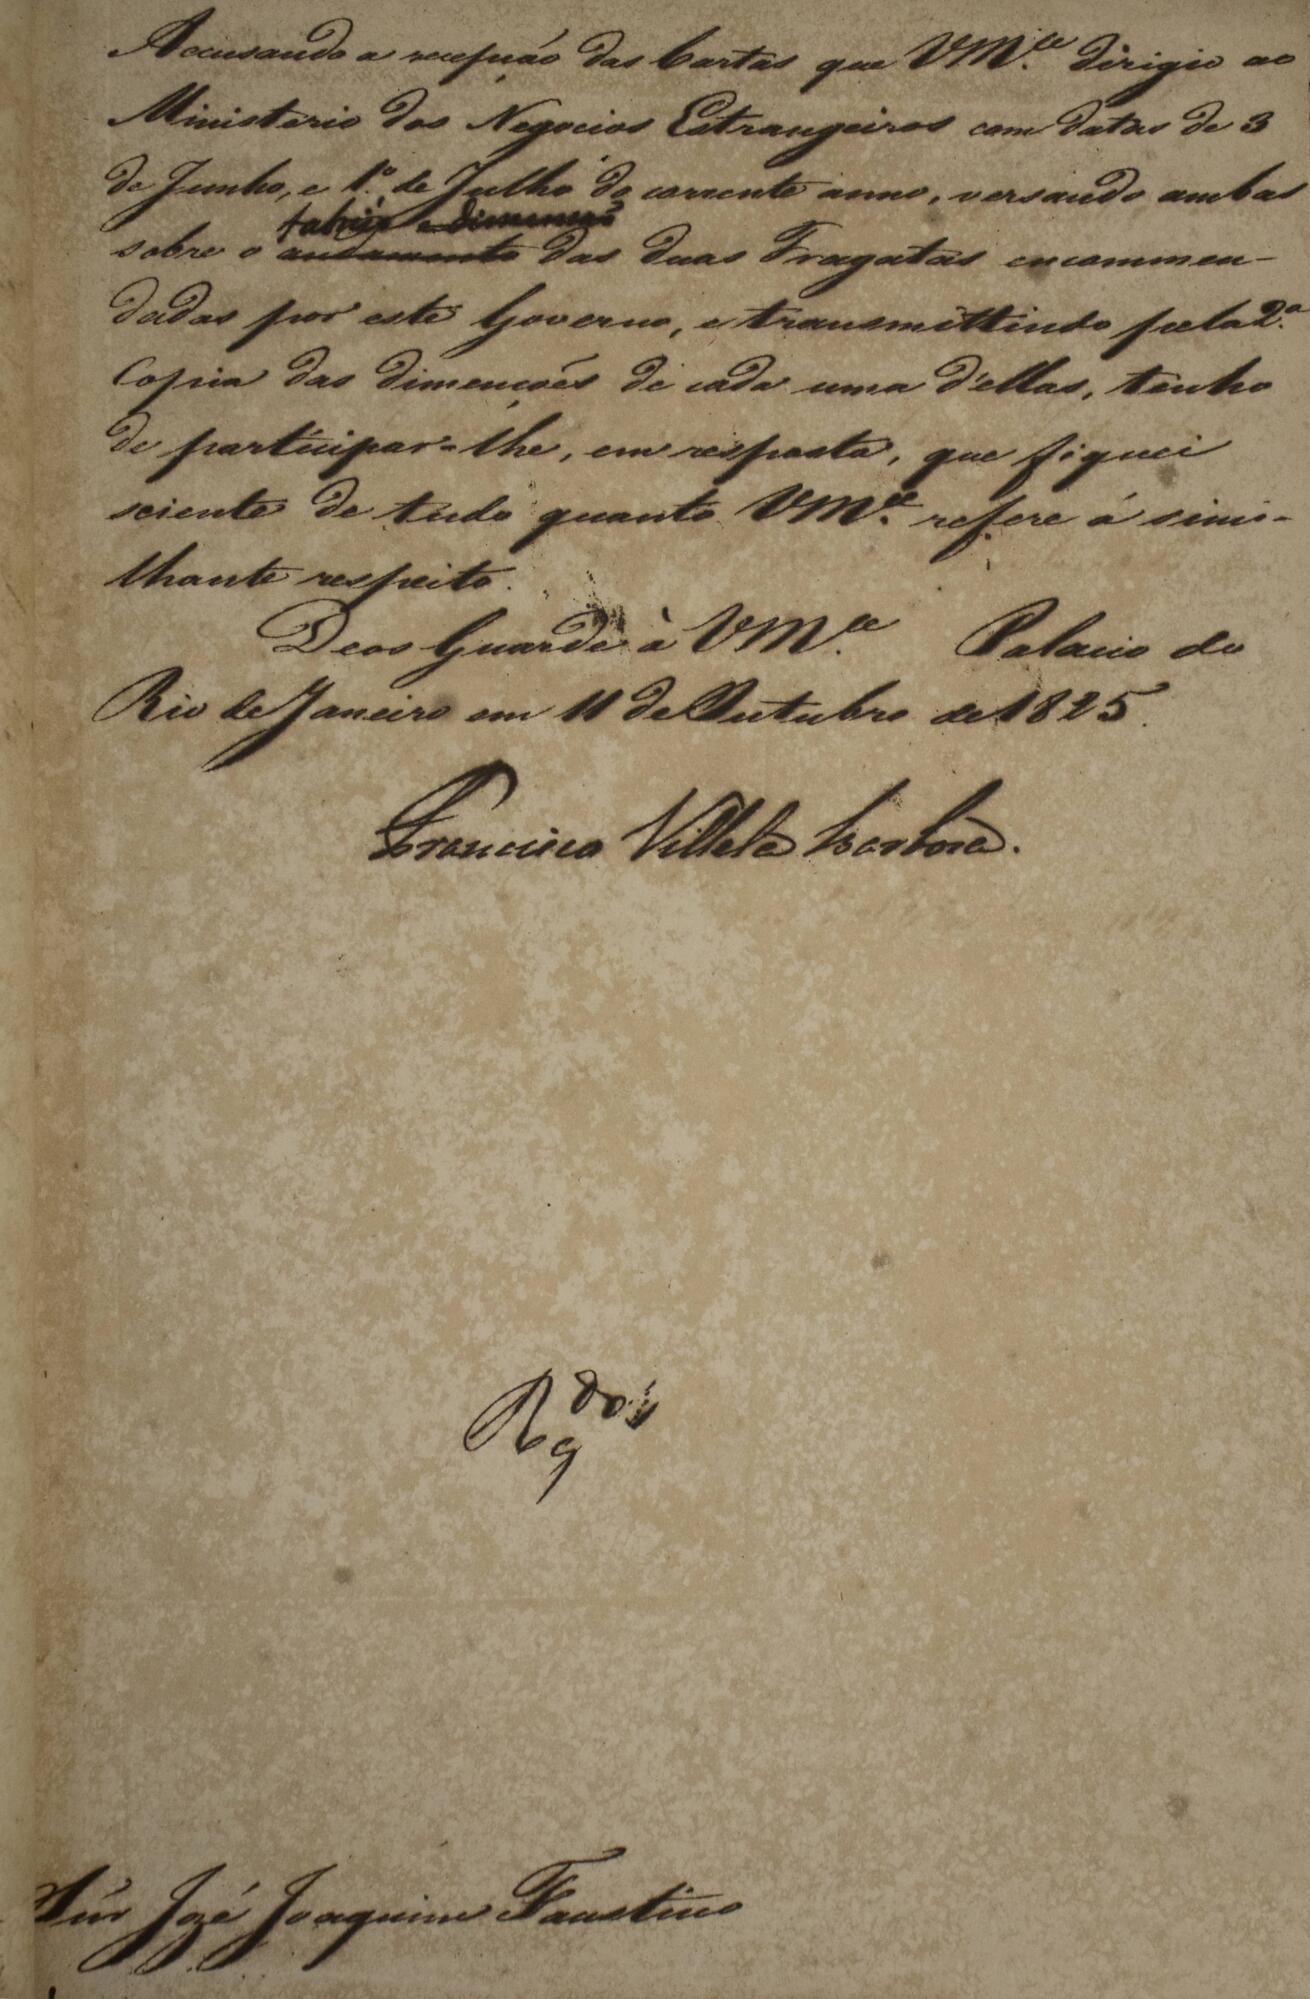 Accusando a recepção das Cartas que VM.ce dirigio ao
Ministerio dos Negocios Estrangeiros com datas de 3
de Junho, e 1.º de Julho do corrente anno, versando ambas
fabrico e dimenções
sobre o andamento das duas Fragatas encommen-
dadas por este Governo, e transmittindo pela 2.ª
Copia das dimenções de cada uma d'ellas, tenho
de participar-lhe, em resposta, que fiquei
sciente de tudo quanto VM.ce refere á simi-
lhante respeito.
Deos Guarde à VM.ce Palacio do
Rio de Janeiro em 11 de Outubro de 1825.
Francisco Villela Barbosa.
Snr José Joaquim Faustino